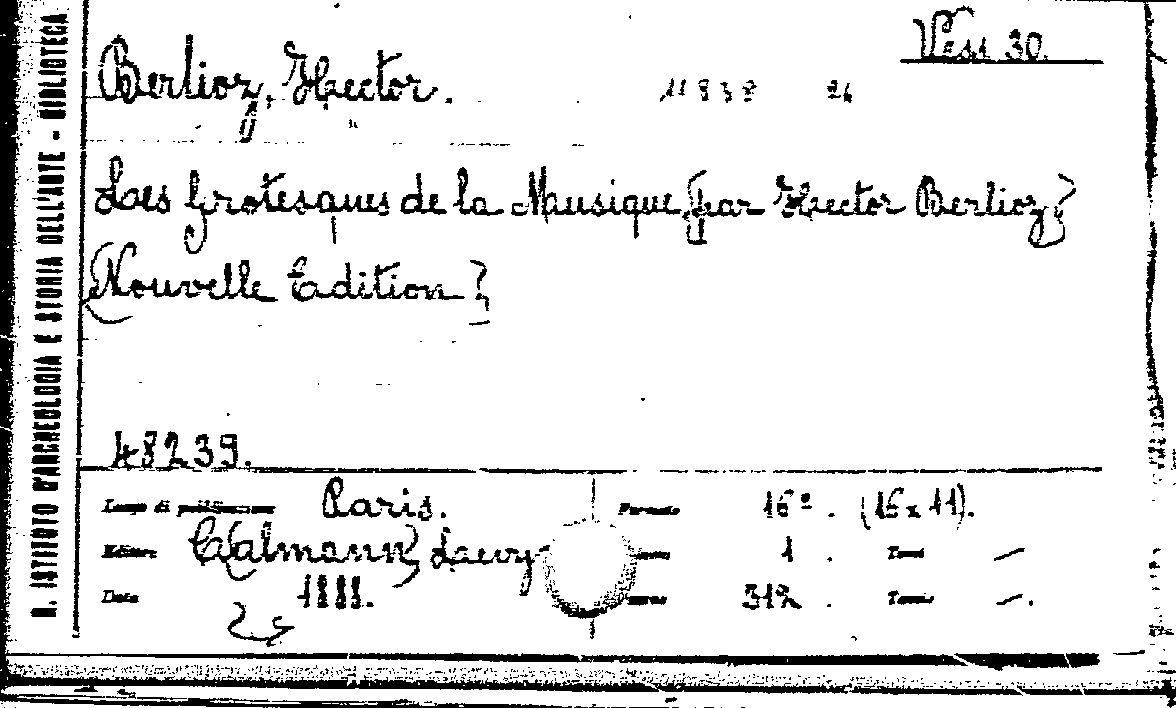 R. ISTITUTO D'ARCHEOLOGIA E STORIA DELL'ARTE - BIBLIOTECA
Vess 30.
Berlioz, Hector.
11838 24
Les grotesques de la Musique, (par Hector Berlioz)
(Nouvelle Edition)
48239.
Luogo di pubblicazione Paris. Formato 16º. (16 x 11).
Editore C(almann) Levy 1. Tomi —
Data 1888. 312. Tavole —.